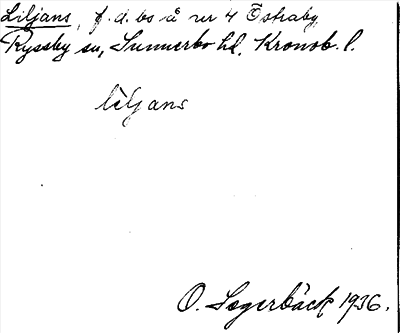 Liljans, f.d. bs å nr 4 Östraby,
Ryssby sn, Sunnerbo hd. Kronob. l.
lìljans
O. Segerbäck 1936.